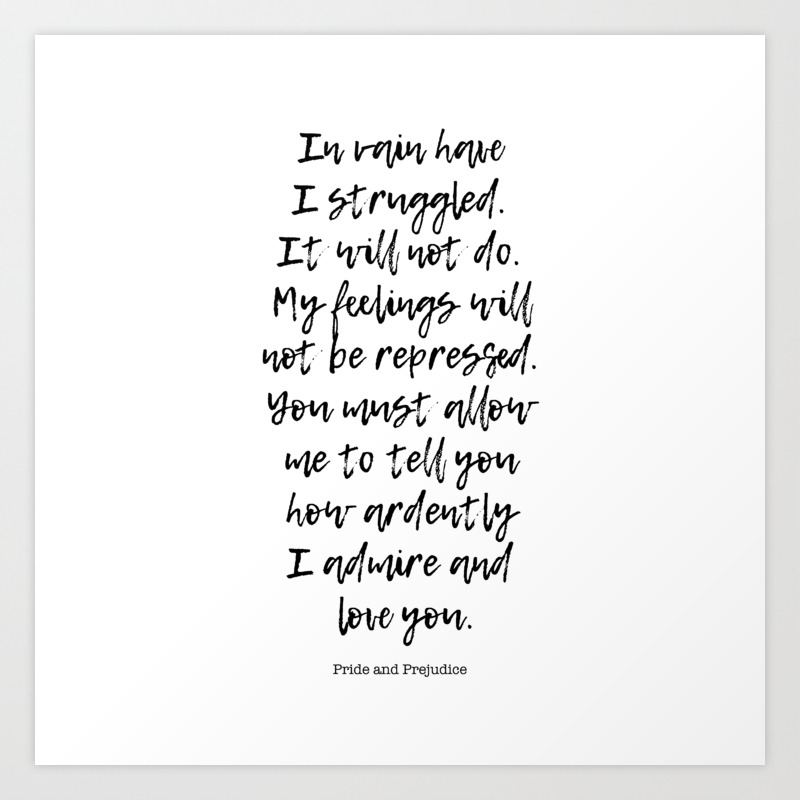 In vain have
I struggled.
It will not do.
My feelings will
not be repressed.
You must allow
me to tell you
how ardently
I admire and
love you.
Pride and Prejudice